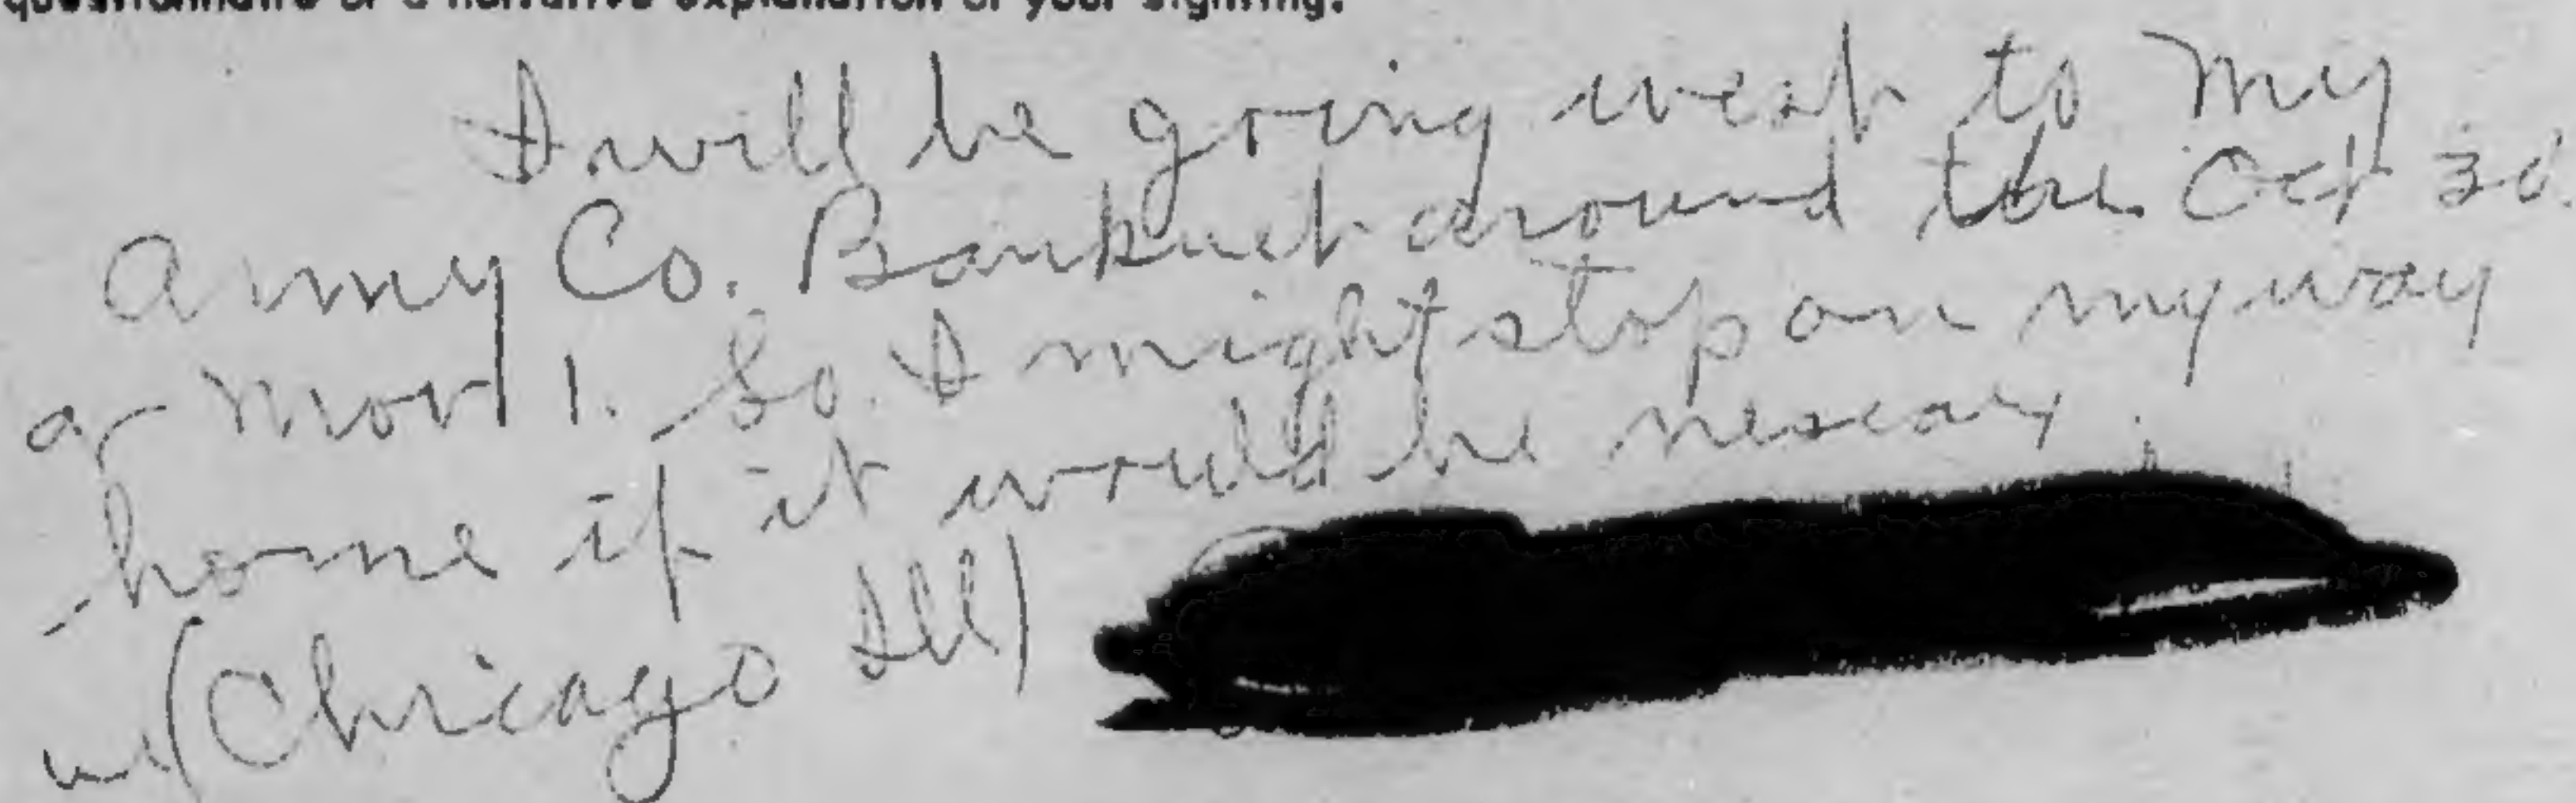 questionnaire or a narrative explanation of your sighting.
I will be going west to My
Army Co. Bankuet around the Oct 30.
or Nov 1. So. I might stop on my way
home if it would be nescary.
(Chicago Ill)